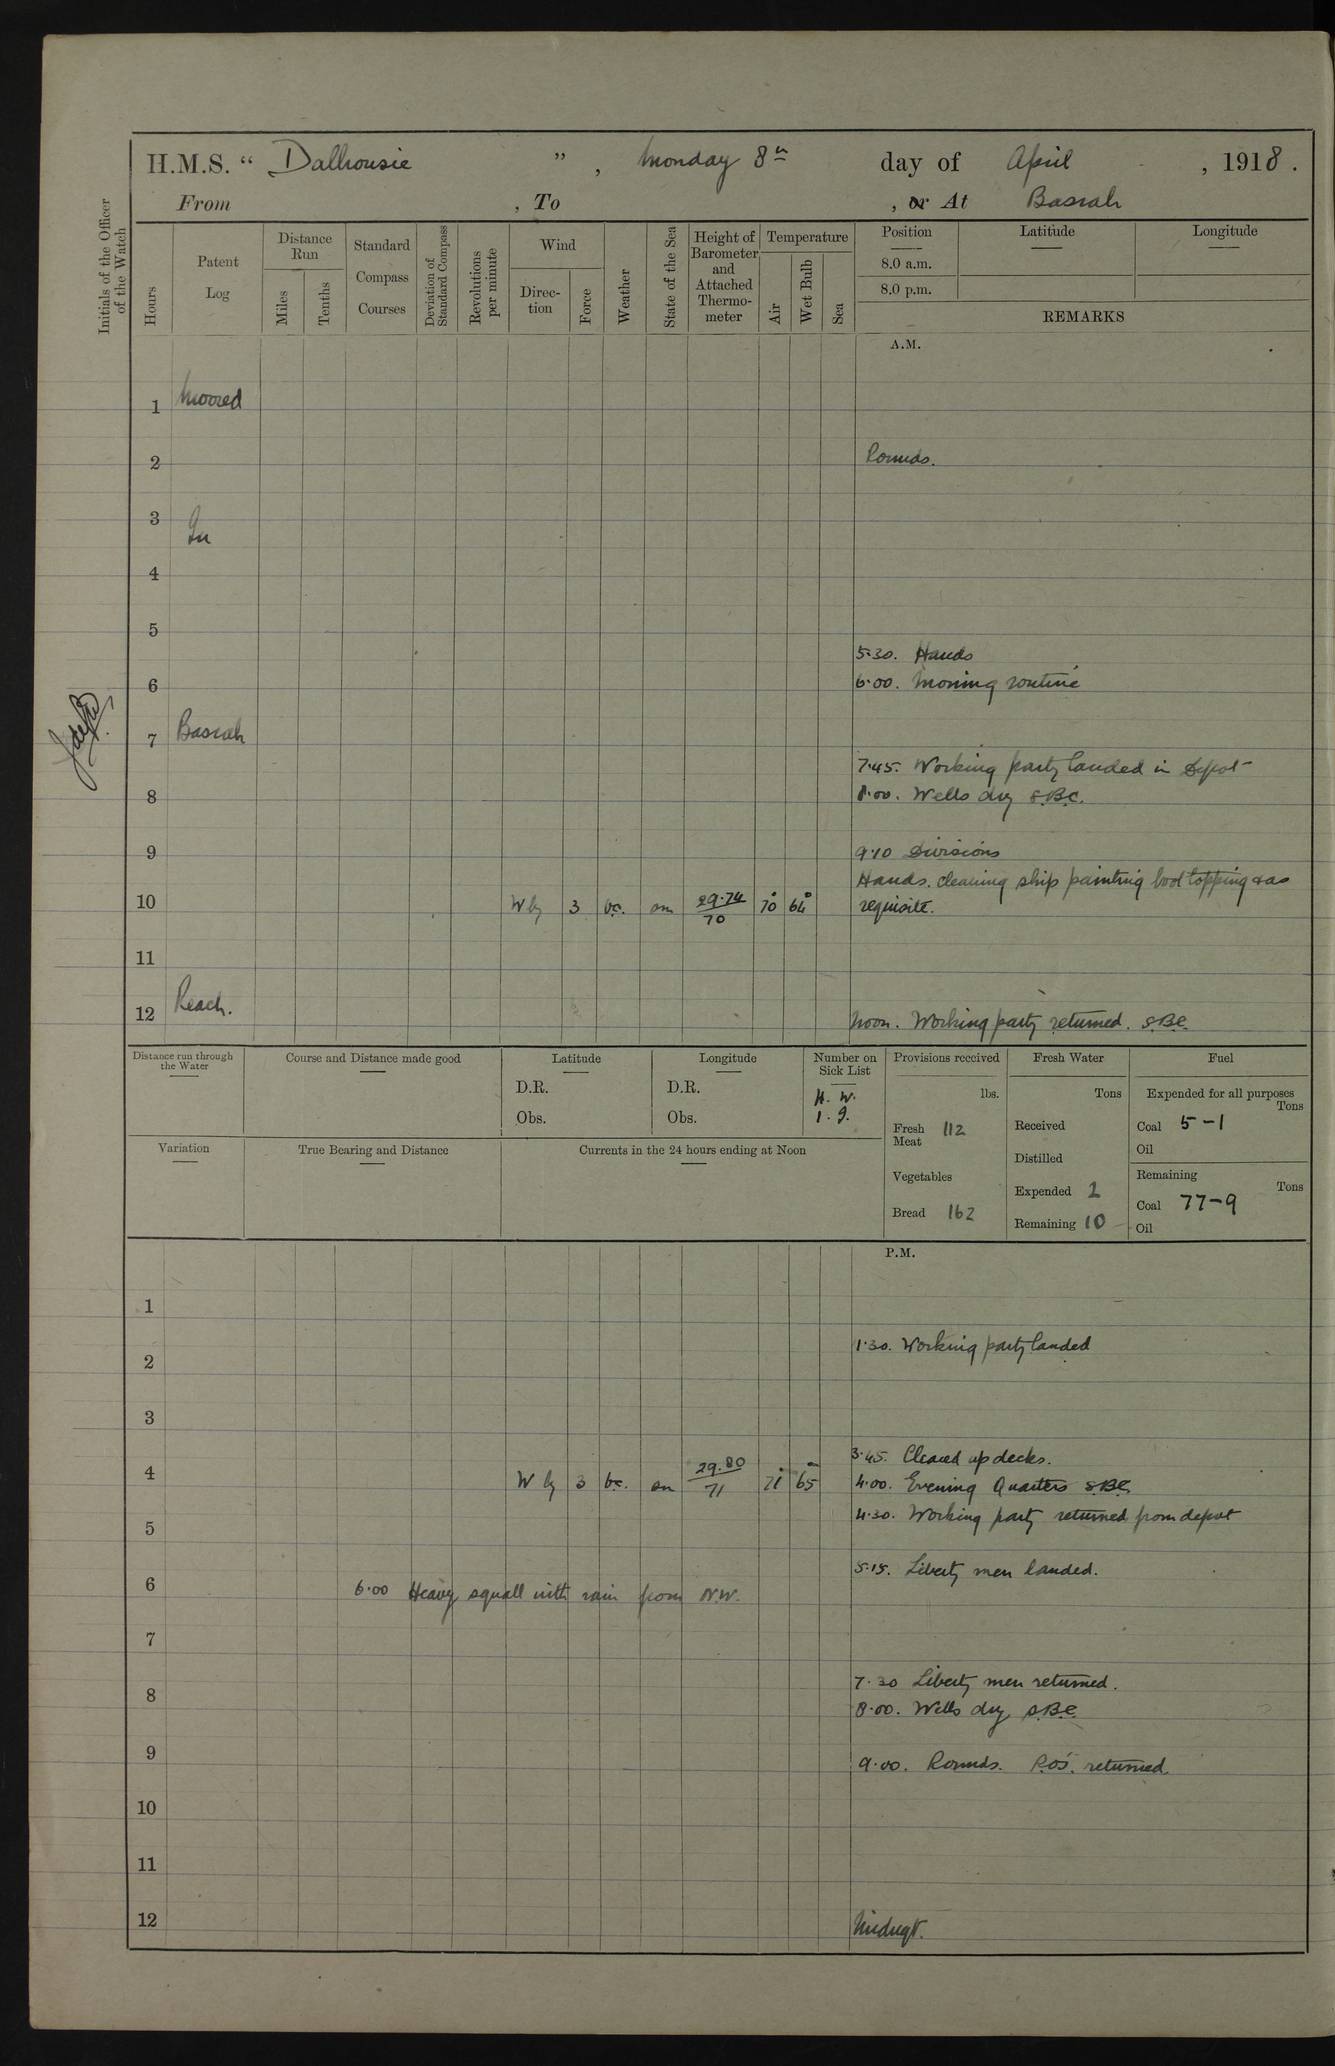 H.M.S. “ Dalhousie ” , Monday 8th day of April , 1918 .
From , To , or At Basrah
Initials of the Officer of the Watch
Hours
Patent Log
Distance Run
Miles
Tenths
Standard Compass Courses
Deviation of Standard Compass
Revolutions per minute
Wind
Direc-tion
Force
Weather
State of the Sea
Height of Barometer and Attached Thermo-meter
Temperature
Air
Wet Bulb
Sea
Position
8.0 a.m.
8.0 p.m.
Latitude
Longitude
REMARKS
A.M.
1 Moored
2 Rounds.
3 In
4
5
5.30. Hands
6 6.00. Morning routine
7 Basrah
7.45. Working party landed in Depot
8 8.00. Wells dry S.B.C.
9 9.10 Divisions
Hands. cleaning ship painting boot topping & as
10 Wly 3 bc. sm 29.74/70 70° 64° requisite.
11
12 Reach. Noon. Working party returned. S.B.C.
Distance run through the Water
Course and Distance made good
Latitude
D.R.
Obs.
Longitude
D.R.
Obs.
Number on Sick List
H. W.
1. 9.
Provisions received
lbs.
Fresh Meat 112
Vegetables
Bread 162
Fresh Water
Tons
Received
Distilled
Expended 2
Remaining 10
Fuel
Expended for all purposes
Tons
Coal 5-1
Oil
Remaining
Tons
Coal 77-9
Oil
Variation
True Bearing and Distance
Currents in the 24 hours ending at Noon
P.M.
1
1.30. Working party landed
2
3
3.45. Cleared up decks.
4 W ly 3 bc. sm 29.80/71 71° 65° 4.00. Evening Quarters S.B.C.
4.30. Working party returned from depot
5
5.15. Liberty men landed.
6 6.00 Heavy squall with rain from N.W.
7
7.30 Liberty men returned.
8 8.00. Wells dry S.B.C.
9 9.00. Rounds. P.O's. returned
10
11
12 Midngt.